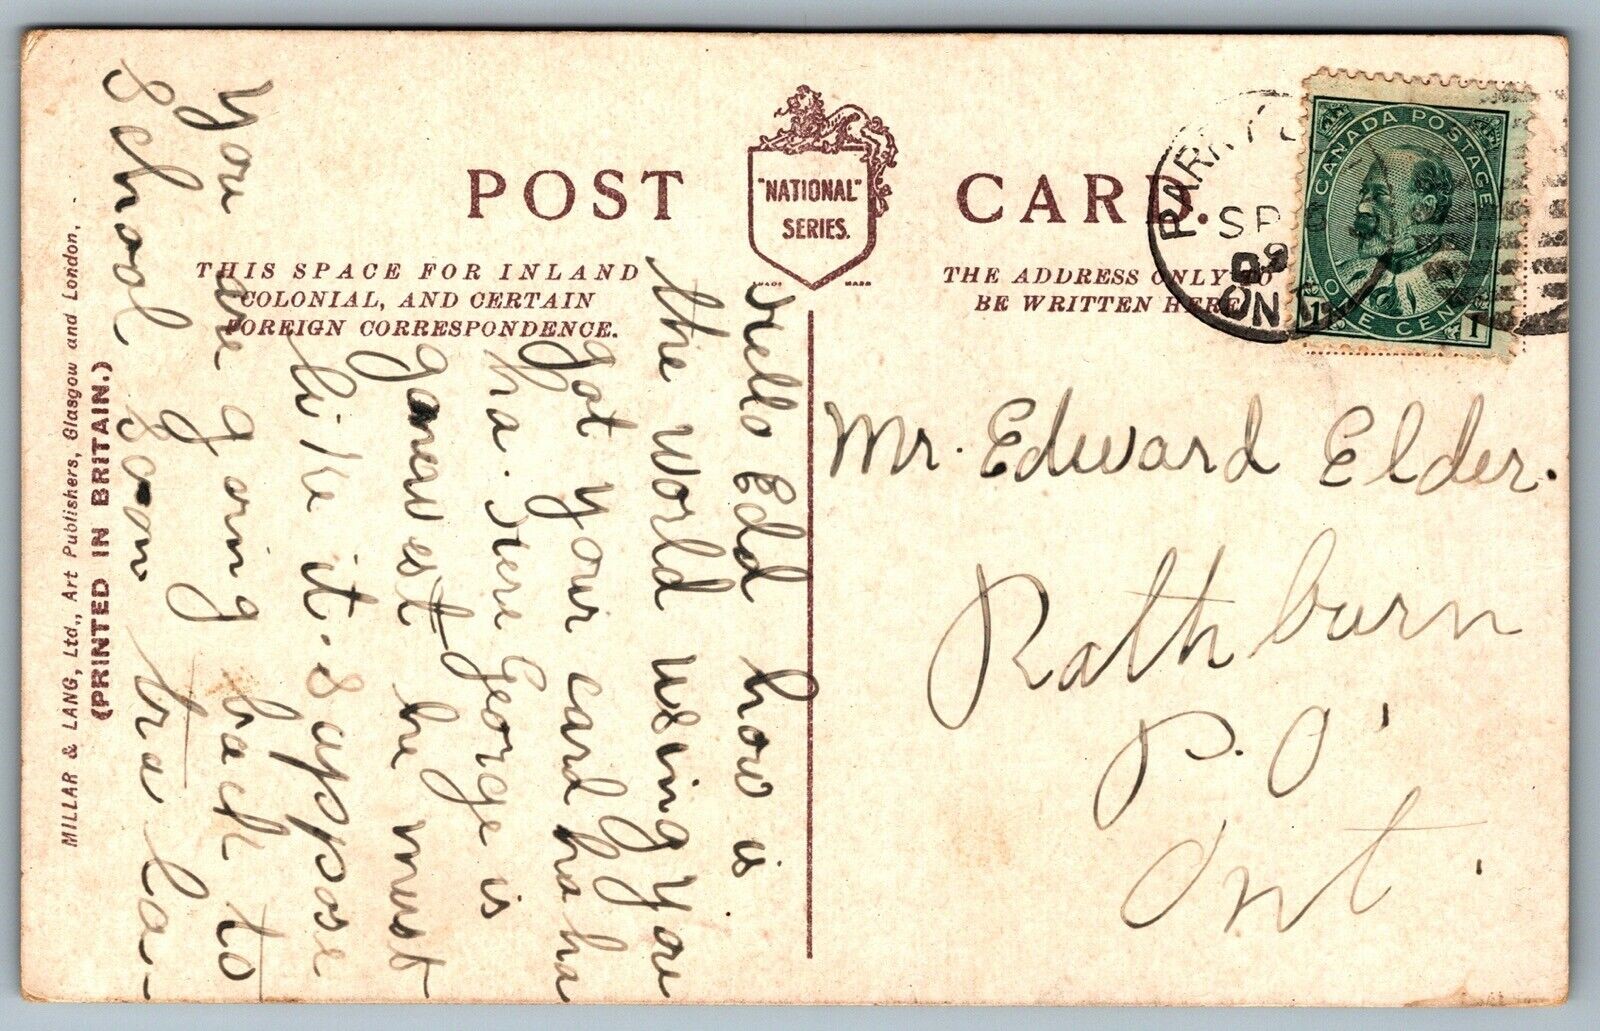 POST CARD.
"NATIONAL"
SERIES.
TRADE MARK
THIS SPACE FOR INLAND
COLONIAL, AND CERTAIN
FOREIGN CORRESPONDENCE.
THE ADDRESS ONLY TO
BE WRITTEN HERE
PARRY
SP
09
ON
CANADA POSTAGE
ONE CENT
1 1
Mr. Edward Elder.
Rathburn
P.O.
Ont.
Hello Edd how is
the world using you
got your card ha ha
ha. George is
gone west he must
like it. Sappose
you are going back to
School soon tra la-
MILLAR & LANG, Ltd., Art Publishers, Glasgow and London,
(PRINTED IN BRITAIN.)